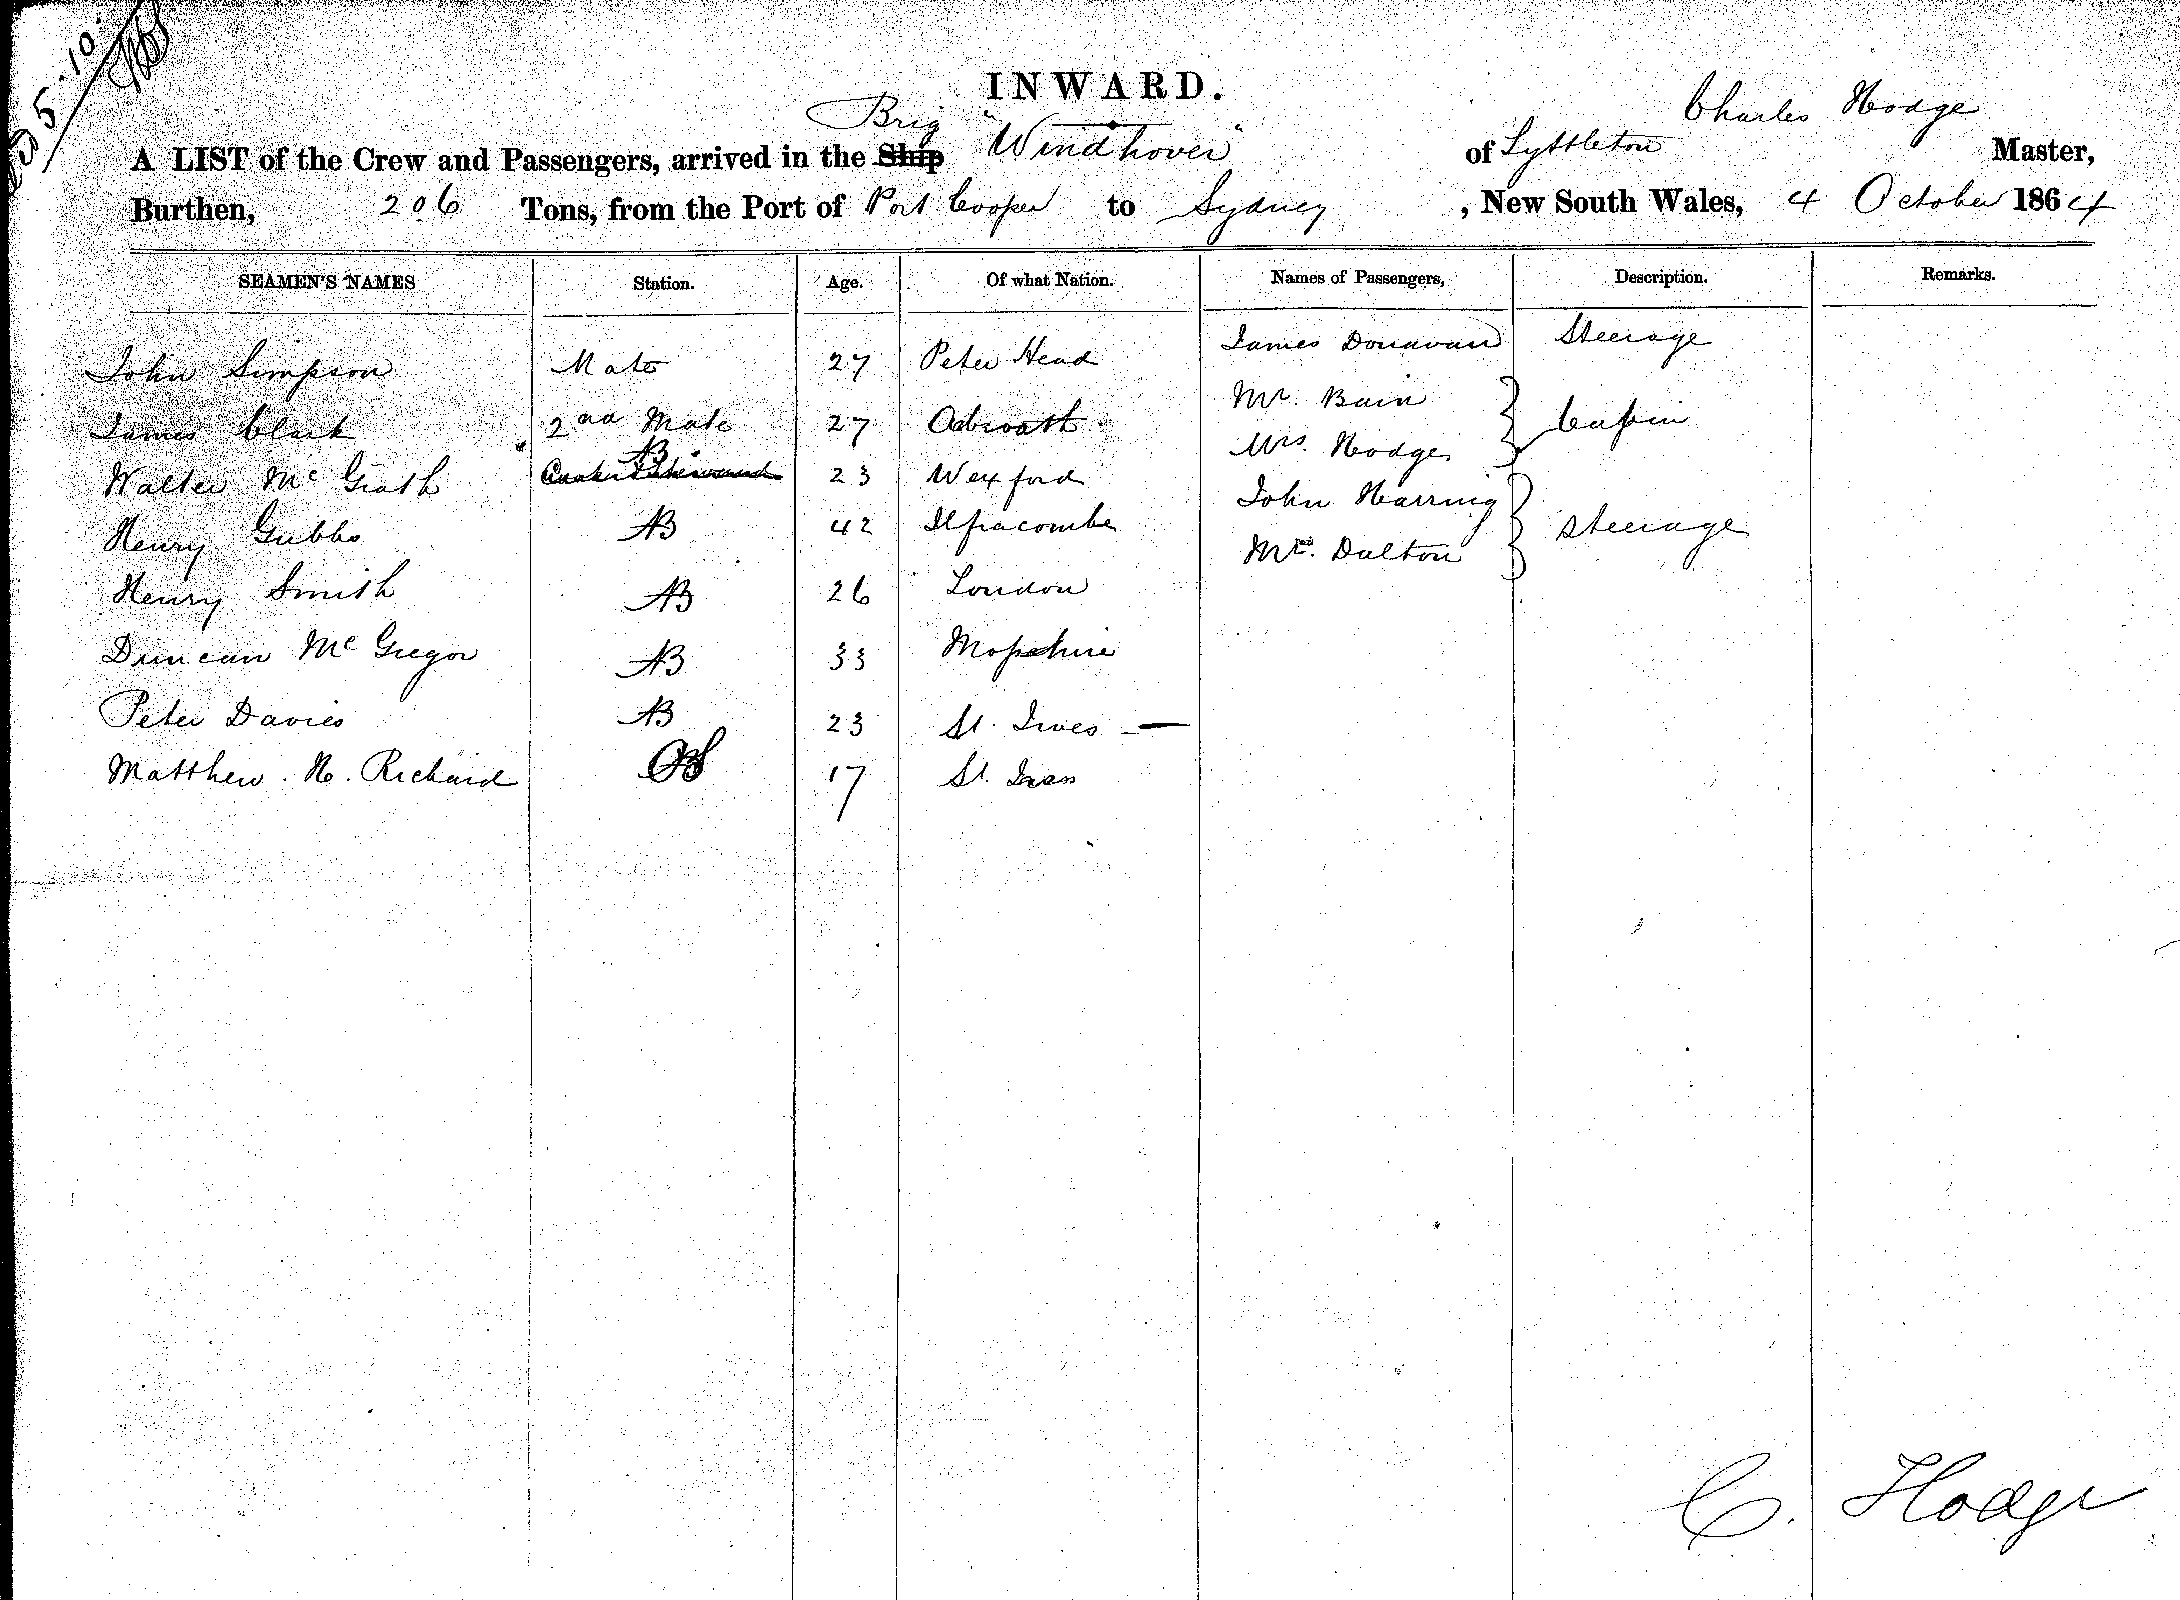 5.10
INWARD.
Brig "Windhover" Charles Hodge
A LIST of the Crew and Passengers, arrived in the Ship of Lyttleton Master,
Burthen, 206 Tons, from the Port of Port Cooper to Sydney, New South Wales, 4 October 1864
SEAMEN'S NAMES Station. Age. Of what Nation. Names of Passengers, Description. Remarks.
John Simpson Mate 27 Peter Head James Donavan Steerage
James Clark 2nd Mate 27 Arbroath Mr. Bain } Cabin
Mrs. Hodge
AB
Walter Mc Grath Cook & Steward 23 Wexford John Harring } Steerage
Henry Gubbs AB 42 Ilfracombe Mrs. Dalton
Henry Smith AB 26 London
Duncan Mc Gregor AB 33 Rosshire
Peter Davies AB 23 St. Ives —
Matthew. H. Richard OS 17 St. Ives
C. Hodge